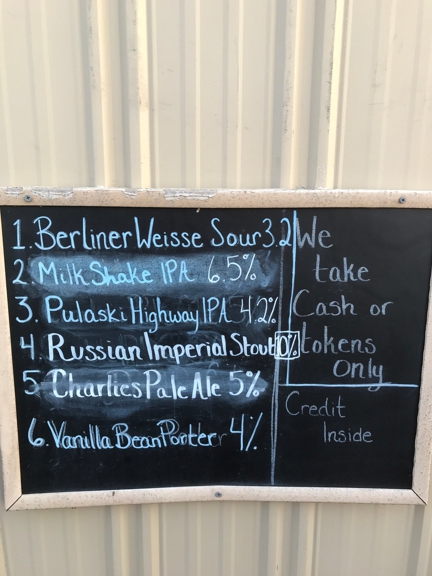 1. Berliner Weisse Sour 3.2
2. MilkShake IPA 6.5%
3. Pulaski Highway IPA 4.2%
4. Russian Imperial Stout 0%
5. Charlies Pale Ale 5%
6. Vanilla Bean Porter 4%
We
take
Cash or
tokens
Only
Credit
Inside